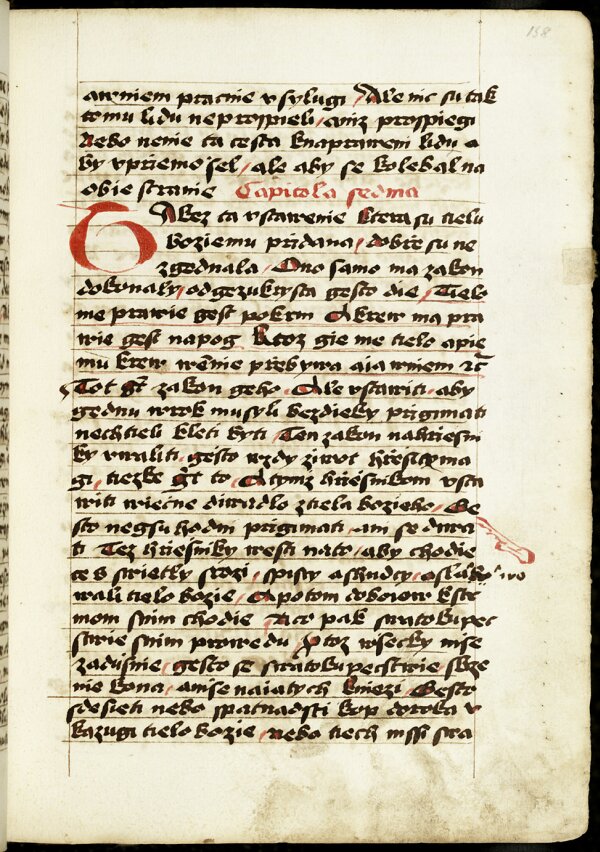 158
awniem pracnie vsylugi Ale nic su tak
tomu lidu neprospieli aniz prospiegi
Nebo nenie ta cesta knaprawení lidu a
by vpriemo sel ale aby se kolebal na
obie stranie Capitola sedma
Akez ta vstawenie ktera su tielu
boziemu pridana dobrze su ne
zgednala Ono samo ma zakon
dokonaly od gezukrysta gesto die Tielo
me prawie gest pokrm A krew ma pra
wie gest napog Ktoz gie me tielo a pie
mu krew wemnie prebywa a ia wniem
Tot gt zakon geho Ale vstawiti aby
gednu wrok musyli bezdieky prigimati
nechtieli kleti byti Ten zakon na hriesni
ky vwaliti gesto wzdy ziwot hriesny ma
gi tiezke gt to A tymz hriesnikom vsta
witi wiecne diwadlo ztiela bozieho Ge
sto negsu hodni prigimati ani se diwa
ti Tez hriesniky westi nato aby chodie
ce s swietly stogi spisty a chudci
wali tielo bozie A potom do bozieho
mom snim chodie A co pak swatokupec
stwie snim prowedu A toz wsecky mse
zadusnie gesto se swatokupecstwie skrze
nie kona a mse naiatych kniezi Gesto
sdesieti nebo spatnadsti kop do roka v
kazugi tielo bozie nebo tiech mssi stra